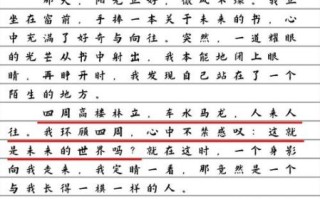 那天，阳光正好，微风不燥。我正
坐在窗前，手捧一本关于未来的书，心
中充满了好奇与向往。突然，一道耀眼
的光芒从书中射出，我本能地闭上眼
睛，再睁开时，我发现自己站在了一个
陌生的地方。
四周高楼林立，车水马龙，人来人
往。我环顾四周，心中不禁感叹：这就
是未来的世界吗？就在这时，一个身影
向我走来，我定睛一看，那竟然是一个
与我长得一模一样的人。